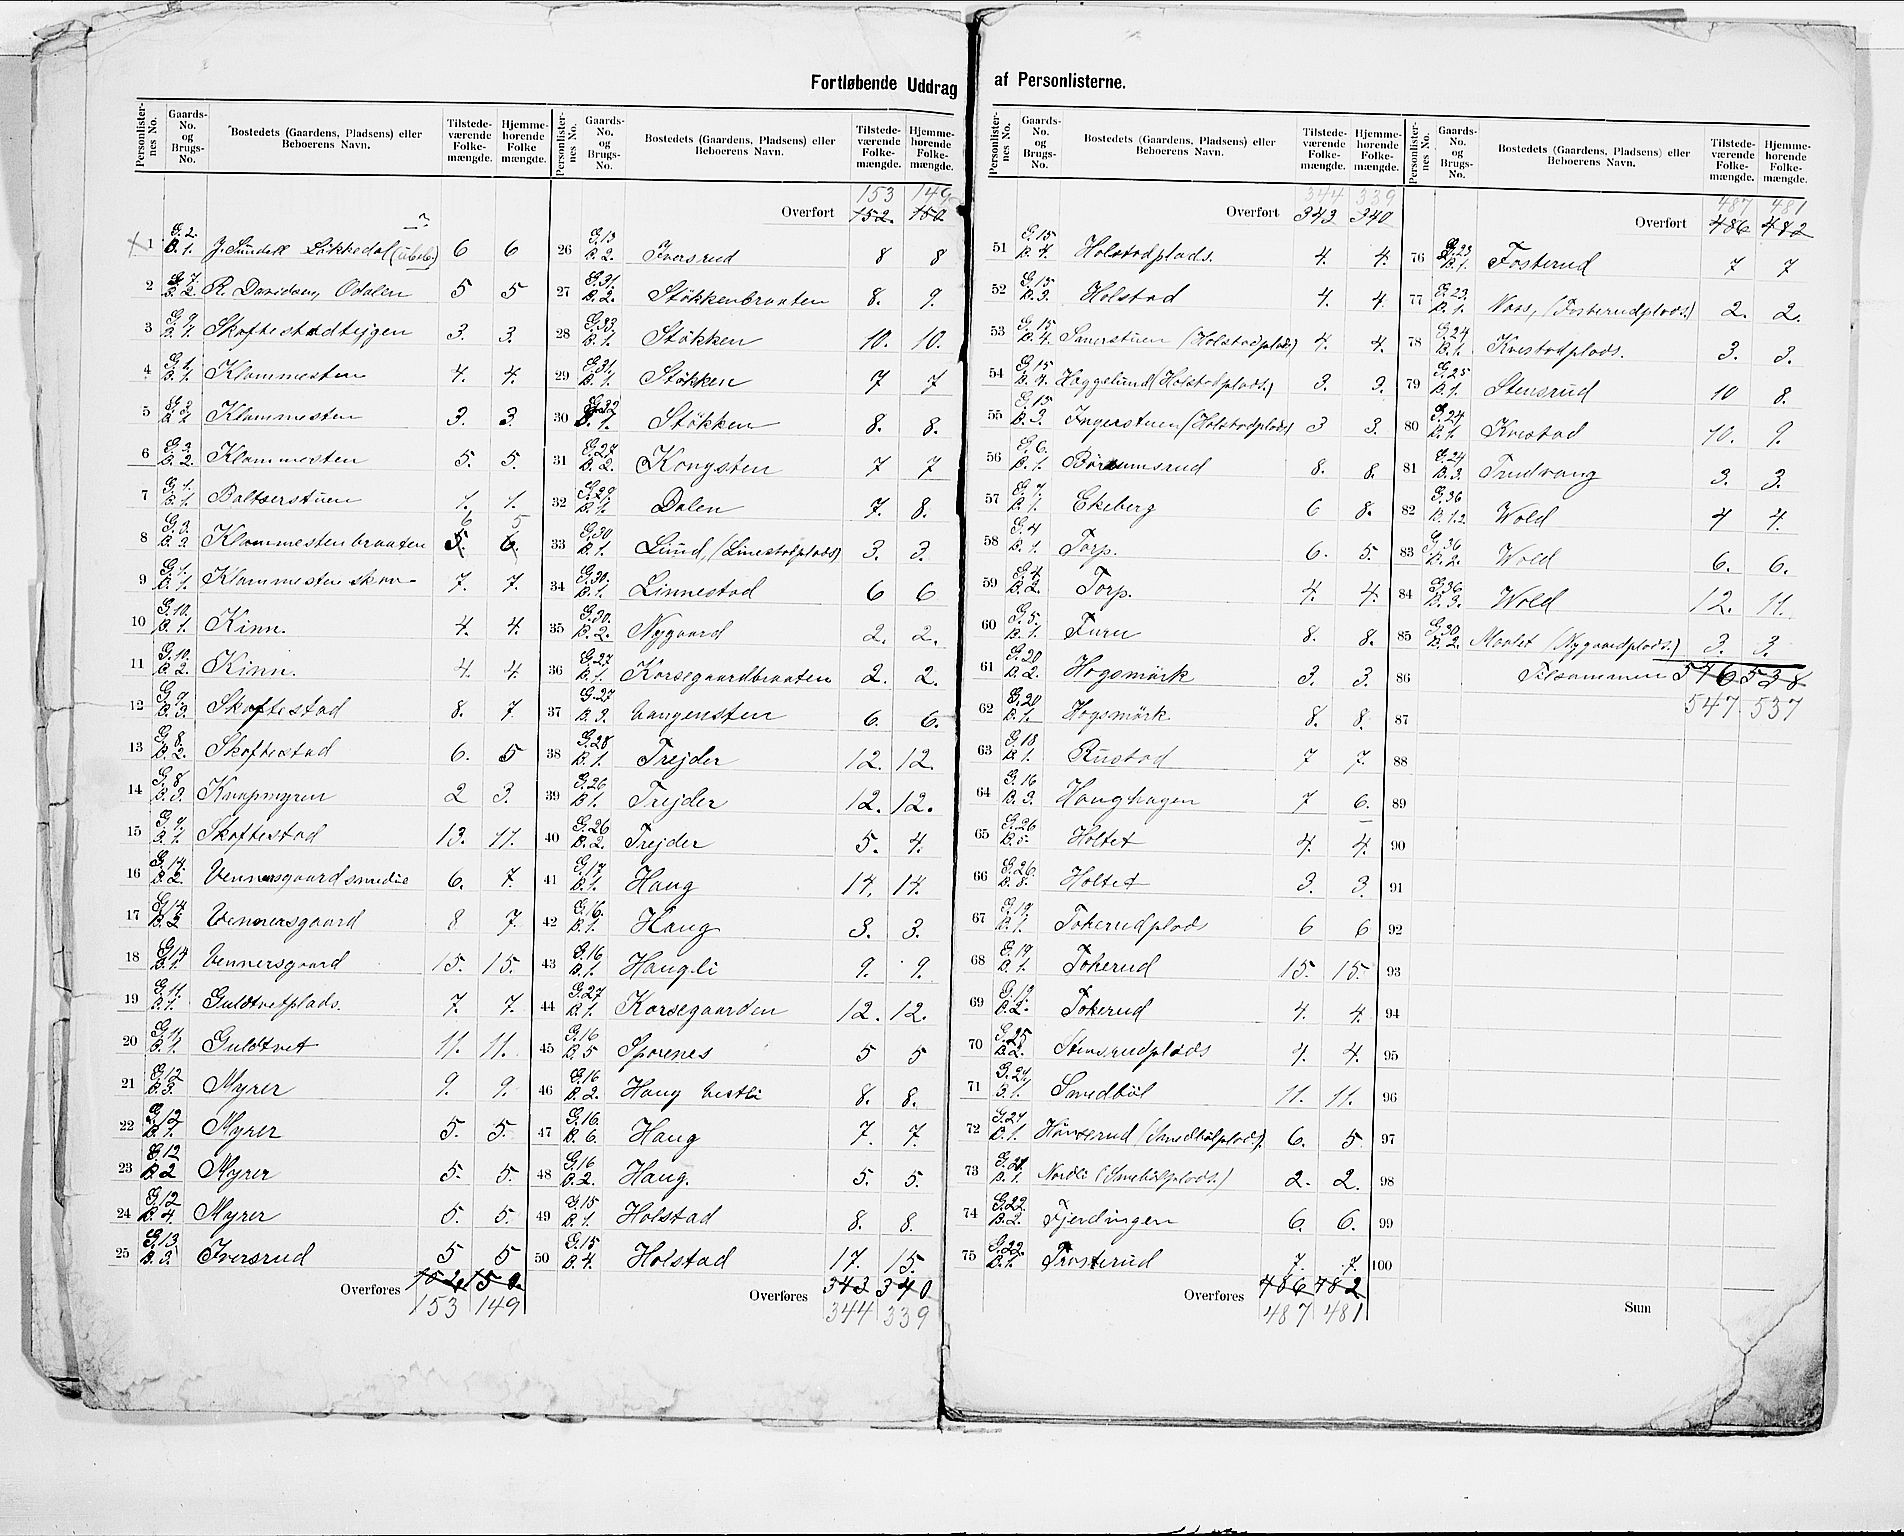 Fortløbende Uddrag af Personlisterne.
Personlister-nes No. | Gaards-No. og Brugs-No. | Bostedets (Gaardens, Pladsens) eller Beboerens Navn. | Tilstede-værende Folke-mængde. | Hjemme-hørende Folke mængde.
1 G. 2. B. 1. J. Sundek Lökkedal (ubeb.) 6 6
2 G. 7. B. 2. R. Davidsen, Odalen 5 5
3 G. 9. B. 4. Skoftestadtejgen 3. 3.
4 G. 1. B. 1. Klommesten 4. 4.
5 G. 3. B. 1. Klommesten 3. 3.
6 G. 3. B. 2. Klommesten 5. 5.
7 G. 1. B. 1. Baltserstuen 1. 1.
8 G. 3. B. 3. Klommestenbraaten 5. 6 6. 5
9 G. 1. B. 1. Klommesteneskov 7. 7.
10 G. 10. B. 1. Kinn. 4. 4.
11 G. 10. B. 2. Kinn. 4. 4.
12 G. 9. B. 3. Skoftestad 8. 7
13 G. 8. B. 2. Skoftestad 6. 5
14 G. 8 B. 3. Knapmyren 2 3.
15 G. 9. B. 1. Skoftestad 13. 11.
16 G. 14. B. 2. Vennersgaardsmedie 6. 7.
17 G. 14 B. 2 Vennersgaard 8 7.
18 G. 14 B. 1. Vennersgaard 15. 15.
19 G. 11. B. 1. Guldtvetplads. 7. 7.
20 G. 11. B. 1. Guldtvet 11. 11.
21 G. 12 B. 3. Myrer 9. 9.
22 G. 12 B. 1. Myrer 5. 5.
23 G. 12 B. 2 Myrer 5. 5.
24 G. 12 B. 4. Myrer 5. 5.
25 G. 13. B. 3. Iversrud 5 5
Overføres 152 150.
153 149
Personlister-nes No. | Gaards-No. og Brugs-No. | Bostedets (Gaardens, Pladsens) eller Beboerens Navn. | Tilstede-værende Folke-mængde. | Hjemme-hørende Folke-mængde.
153 149
Overført 152. 150
26 G. 13 B. 2. Iversrud 8 8
27 G. 31. B. 2. Stökkenbraaten 8. 9.
28 G. 33. B. 1. Stökken 10. 10.
29 G. 31. B. 1. Stökken 7 7
30 G. 32 B. 1. Stökken 8. 8.
31 G. 27 B. 2. Kongsten 7 7
32 G. 29. B. 1. Dalen 7. 8.
33 G. 30 B. 1. Lund, (Linestadplads) 3. 3.
34 G. 30. B. 1. Linnestad 6 6
35 G. 30. B. 2. Nygaard 2. 2.
36 G. 27 B. 1. Korsegaardbraaten 2. 2.
37 G. 27 B. 3. Vangensten 6. 6.
38 G. 28. B. 1. Trejder 12. 12.
39 G. 26 B. 1. Trejder 12. 12.
40 G. 26 B. 2. Trejder 5. 4.
41 G. 17. B. 1. Haug 14. 14.
42 G. 16. B. 1. Haug 3. 3.
43 G. 16 B. 1. Haugli 9. 9.
44 G. 27 B. 1. Korsegaarden 12. 12.
45 G. 16 B. 5 Sporenes 5 5
46 G. 16 B. 2. Haug Vestli 8. 8.
47 G. 16. B. 6. Haug 7. 7.
48 G. 16 B. 2. Haug. 5. 5.
49 G. 15 B. 1. Holstad 8. 8.
50 G. 15 B. 4. Holstad 17. 15.
Overføres 343 340
344 339
Personlister-nes No. | Gaards-No. og Brugs-No. | Bostedets (Gaardens, Pladsens) eller Beboerens Navn. | Tilstede-værende Folke-mængde. | Hjemme-hørende Folke-mængde.
344 339
Overført 343 340
51 G. 15 B. 4. Holstadplads. 4. 4.
52 G. 15 B. 3. Holstad 4. 4.
53 G. 15 B. 4. Smerstuen (Holstadplads) 4. 4.
54 G. 15 B. 4. Heggelund (Holstadplads.) 3. 3.
55 G. 15 B. 3. Ingerstuen (Holstadplads) 3 3.
56 G. 6. B. 1. Börsumsrud 8. 8.
57 G. 7. B. 1. Ekeberg 6 8.
58 G. 4 B. 1. Torp. 6. 5.
59 G. 4. B. 2. Torp. 4. 4.
60 G. 5. B. 1. Furu 8. 8.
61 G. 20 B. 2. Hogsmörk 3. 3.
62 G. 20 B. 1. Hogsmörk 8. 8.
63 G. 18 B. 1 Rustad 7 7.
64 G. 16 B. 3. Haughagen 7 6.
65 G. 26 B. 5. Holtet 4. 4.
66 G. 26. B. 8. Holtet 3. 3.
67 G. 19. B. 1. Tokerudplads 6 6
68 G. 19. B. 1. Tokerud 15. 15.
69 G. 19. B. 2. Tokerud 4. 4.
70 G. 25 B. 2. Stensrudplads 4. 4.
71 G. 21. B. 1. Smedböl 11. 11.
72 G. 21 B. 1. Hanserud (Smedbölplads). 6. 5
73 G. 21. B. 1. Nordli (Smedbölplads.) 2. 2.
74 G. 22. B. 2. Fjerdingen 6. 6.
75 G. 22. B. 1. Frosterud 7. 7.
Overføres 486 482
487 481
Personlister-nes No. | Gaards-No. og Brugs-No. | Bostedets (Gaardens, Pladsens) eller Beboerens Navn. | Tilstede-værende Folke-mængde. | Hjemme-hørende Folke-mængde.
487 481
Overført 486 482
76 G. 23 B. 1. Fosterud 7 7
77 G. 23. B. 1. Næss, (Fosterudplads.) 2. 2.
78 G. 24 B. 1. Kvestadplads. 3. 3.
79 G. 25 B. 1. Stensrud 10 8.
80 G. 24 B. 1. Kvestad 10. 9.
81 G. 24 B. 3. Trudvang 3. 3.
82 G. 36 B. 1.2. Wold 4 4.
83 G. 36 B. 2. Wold 6. 6.
84 G. 36 B. 3. Wold 12. 11.
85 G. 30 B. 2. Maalet (Nygaardplads.) 3. 3.
86 Tilsammen 546 538
87 547. 537
88
89
90
91
92
93
94
95
96
97
98
99
100
Sum